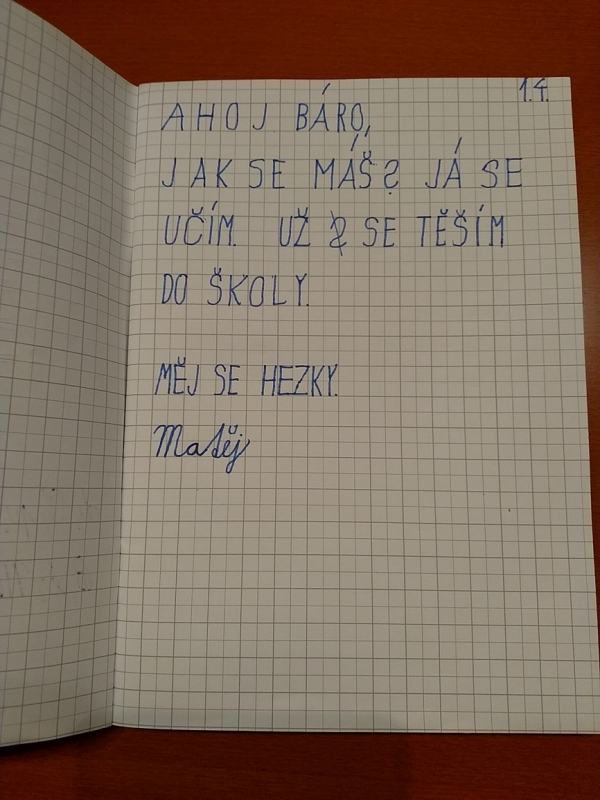 1.4.
AHOJ BÁRO,
JAK SE MÁŠ? JÁ SE
UČÍM. UŽ SE TĚŠÍM
DO ŠKOLY.
MĚJ SE HEZKY.
Matěj